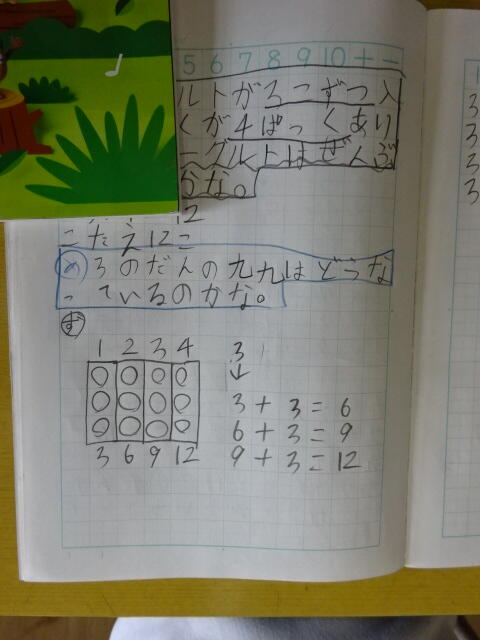 5 6 7 8 9 10 + −
ルトが3こずつ入
くが4ぱっくあり
ーグルトはぜんぶ
かな。
12
こたえ12こ
め 3のだんの九九はどうな
っているのかな。
ず
1 2 3 4 3
↓
3 + 3 = 6
6 + 3 = 9
3 6 9 12 9 + 3 = 12
3
3
3
3